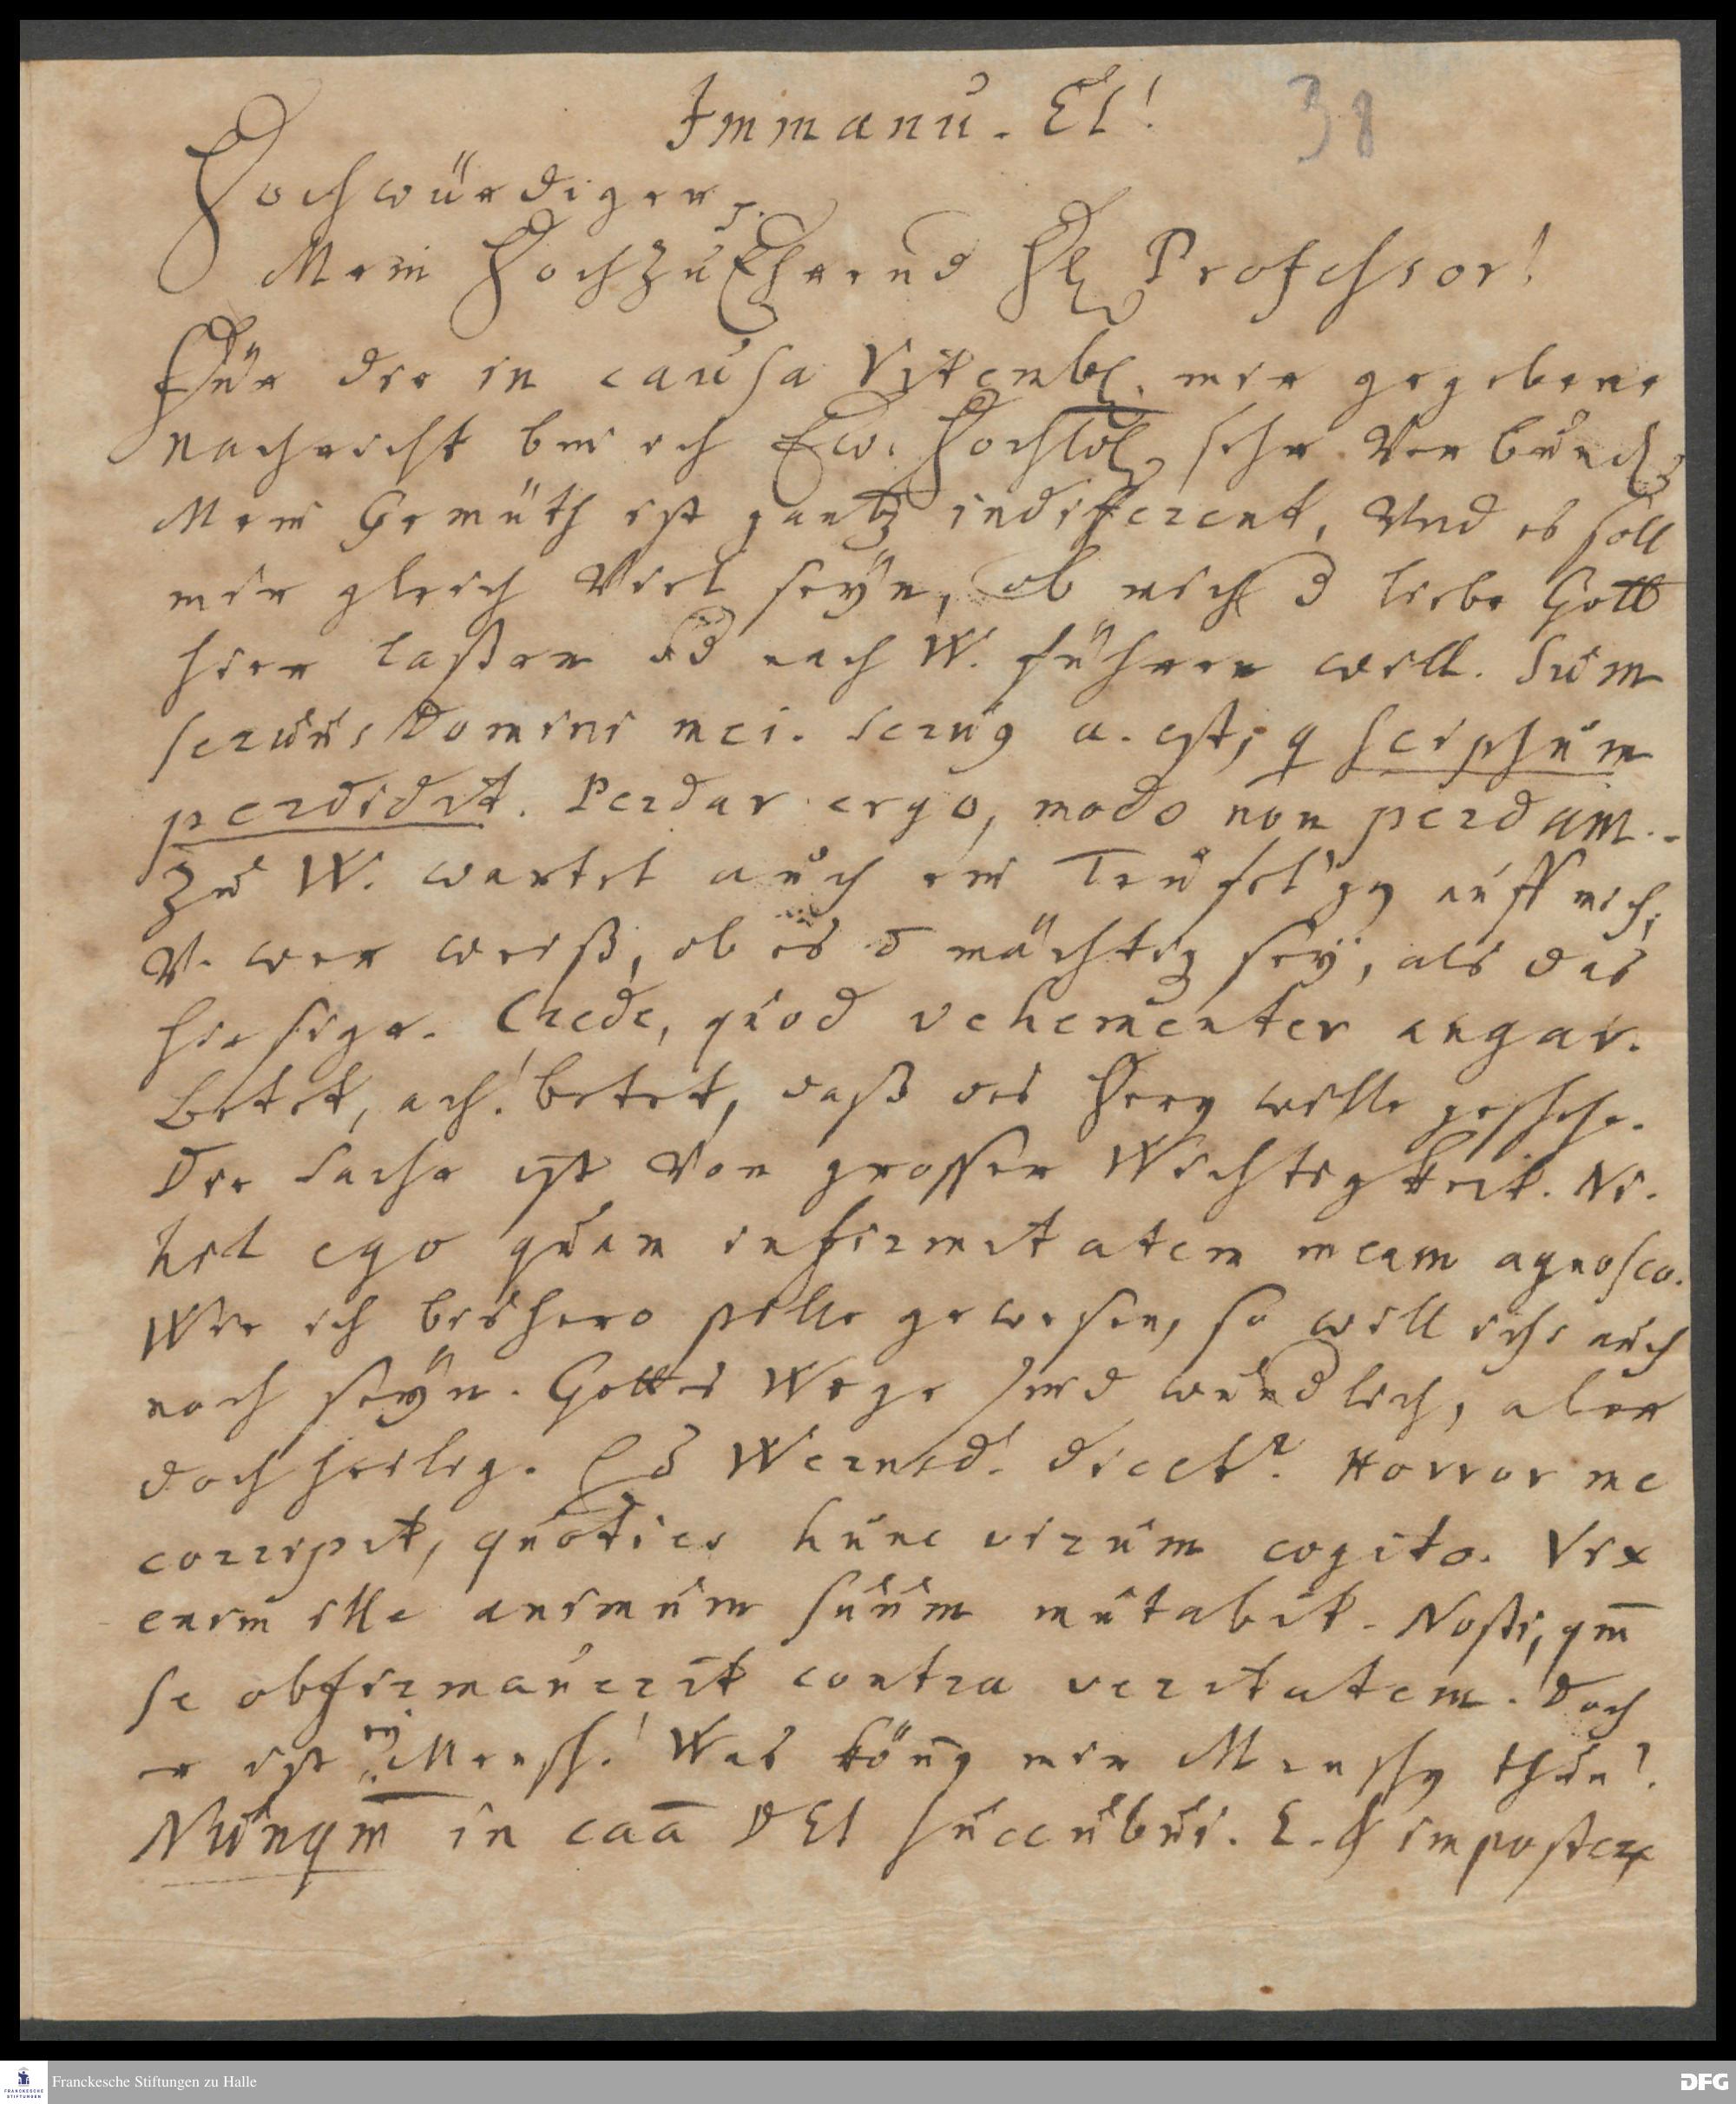 Immanu-El!
38
Hochwürdiger p.
Mein HochzuEhrend H. Professor!
Für die in causa Vitemb. mir gegebene
Nachricht bin ich Ew. Hochlöbl. sehr Verbund.
Mein Gemüth ist gantz indifferent, Und es soll
mir gleich Viel seyn, ob mich d liebe Gott
hier laßen od nach W. führen will. Sum
seruus Domini mei. Seruus a. est, q seipsum
perdidit. Perdar ergo, modo non perdam.
Zu W. wartet auch ein Teufel auff mich,
V. wer weiß, ob es mächtig sey, als das
hiesige. Crede, quod vehementer angar.
Betet, ach! betet, daß des Herrn wille geschehe.
Die Sache ist Von grosser Wichtigkeit. Ni-
hil ego quam infirmitatem meam agnosco.
Wie ich bishero stille gewesen, so will ichs auch
noch seyn. Gottes Wege sind wundlich, aber
doch heilig. Wernsd. dicet? Horror me
corripit, quoties hunc virum cogito. Vix
enim ille animum suum mutabit. Nosti, qm
se obfirmauerit contra veritatem. Doch
er ist ein Mensch! Was können mir Menschen thun?
Nunqm in caa DEI succubui. E. impostera
Franckesche Stiftungen zu Halle
FRANCKESCHE
STIFTUNGEN
DFG